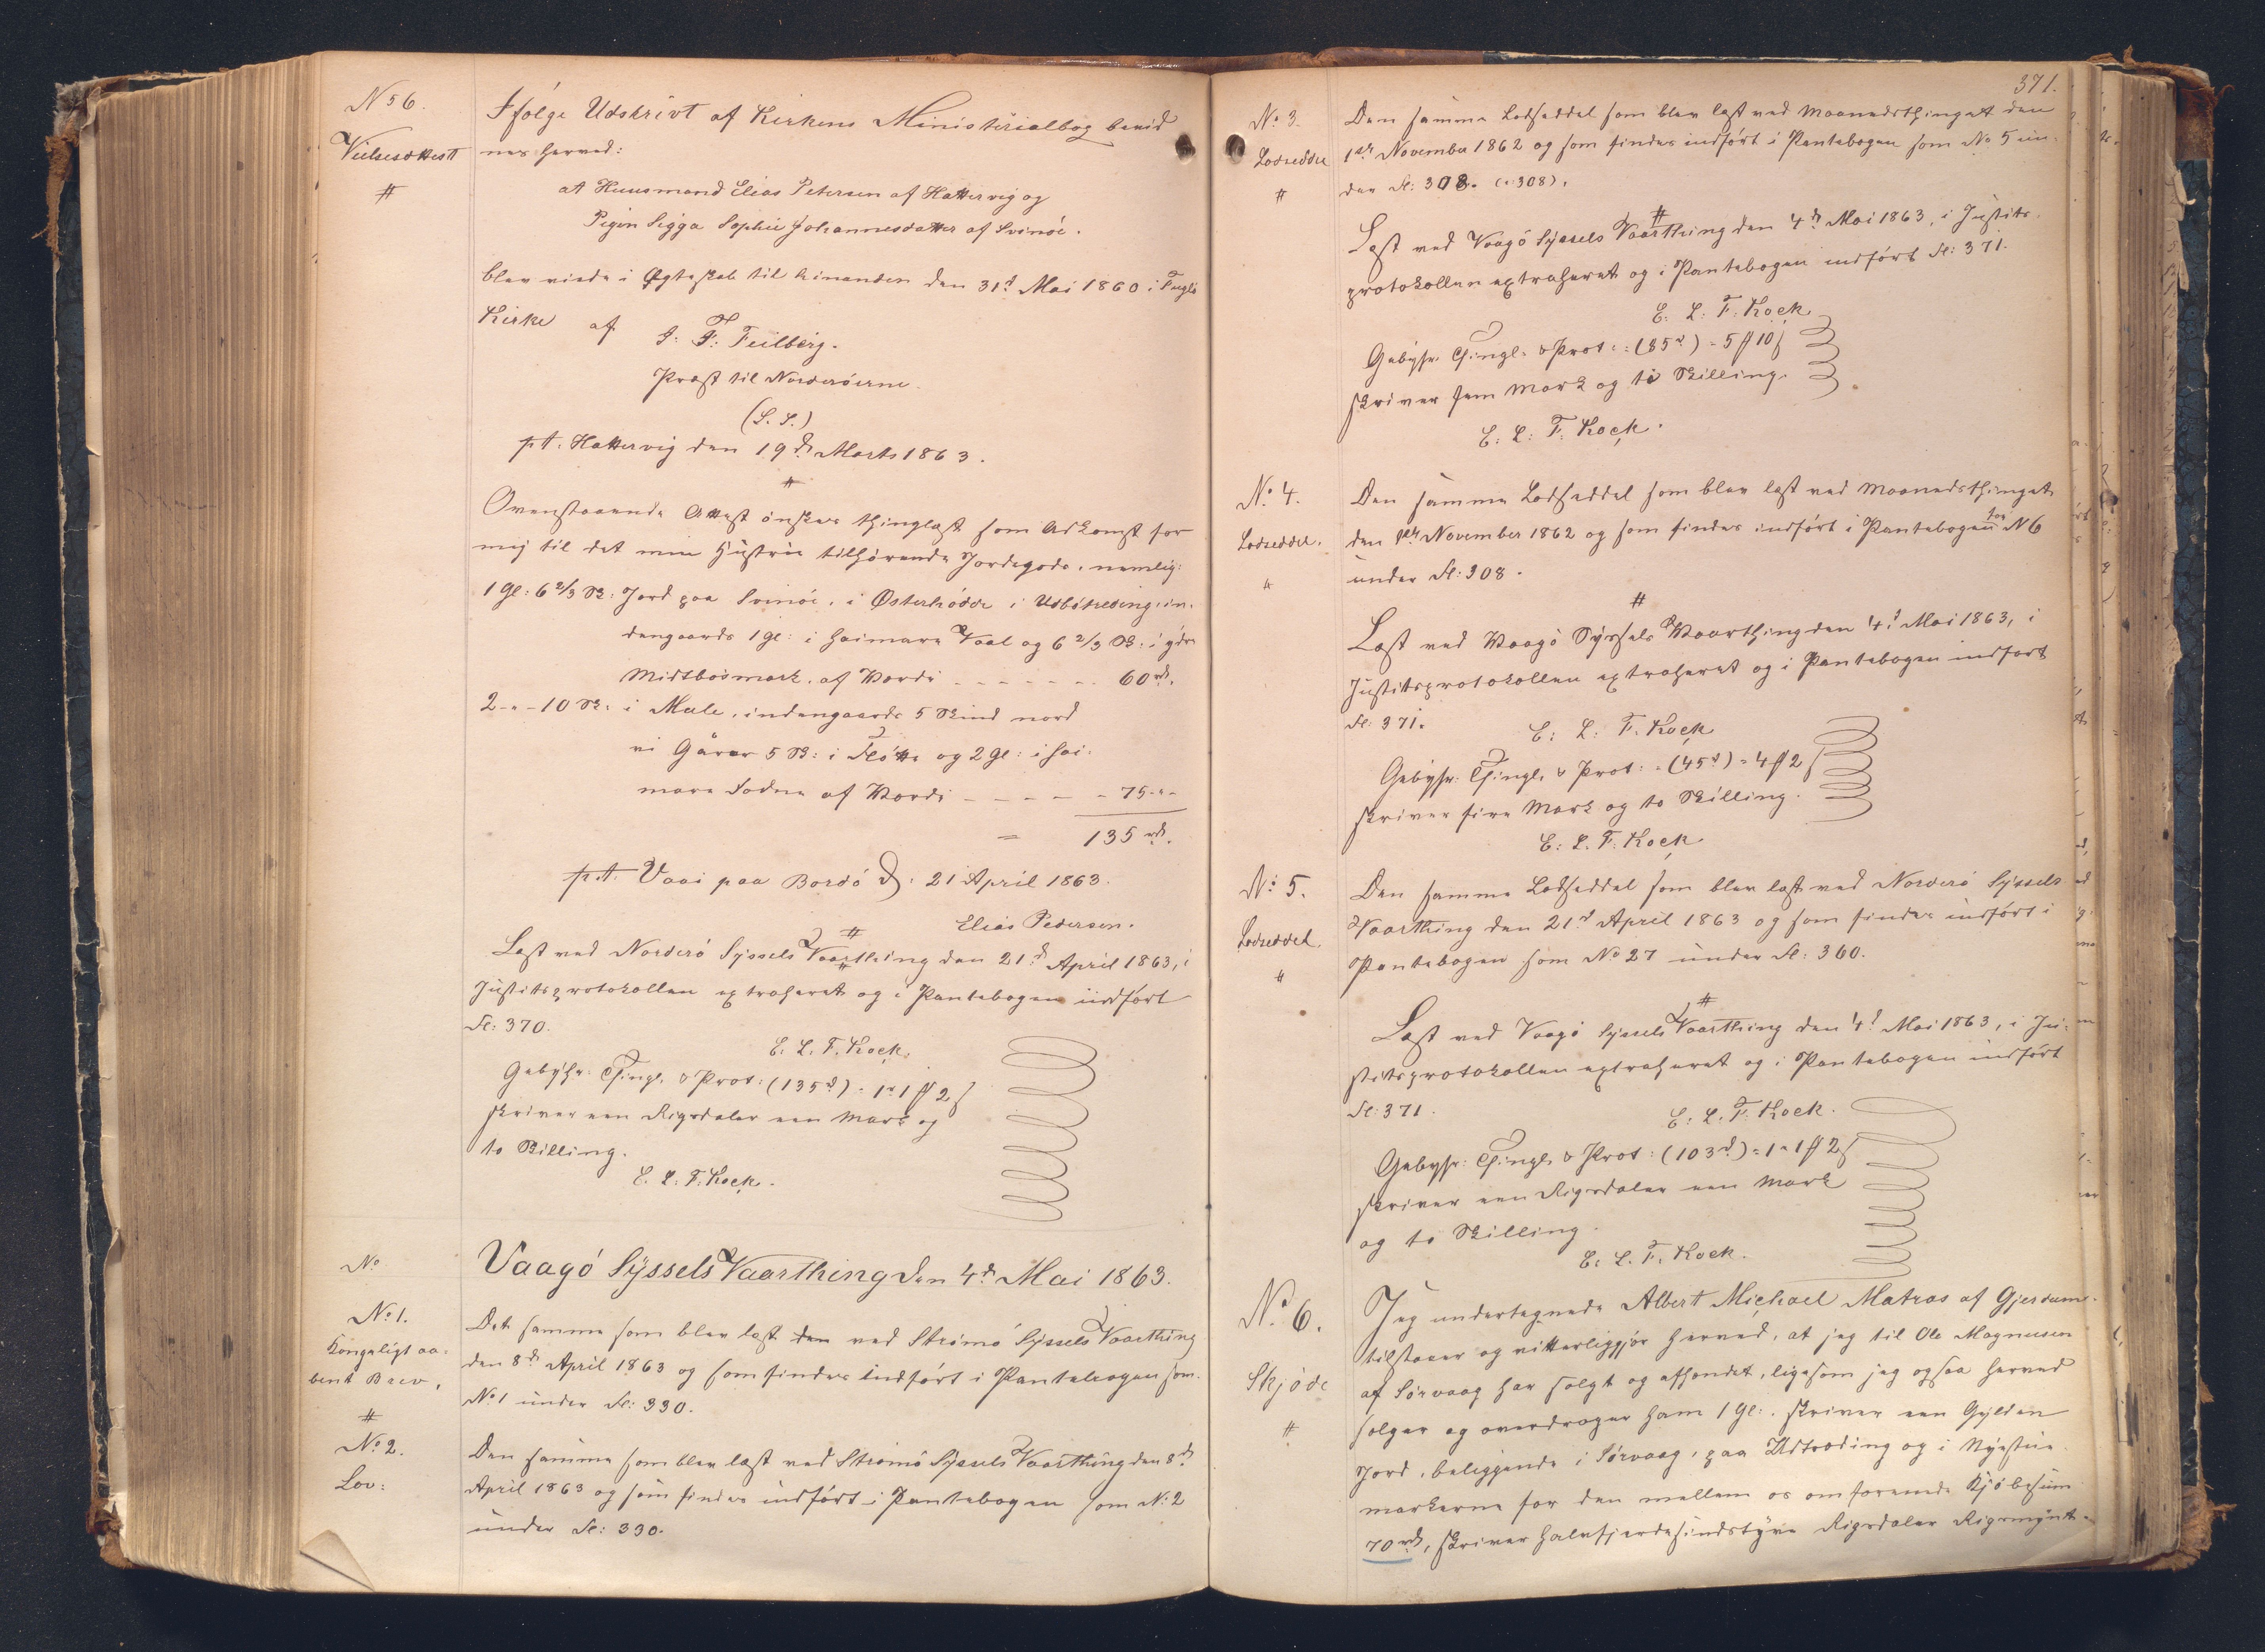 N 56.
Vielsesattest
#
Ifølge Udskrivt af Kirkens Ministerialbog bevid
nes herved:
at Huusmand Elias Petersen af Hattervig og
Pigen Sigga Sophie Johannesdatter af Svinöe.
blev viede i Ægteskab til hinanden den 31d Mai 1860 i Fuglö
Kirke af J. F. Feilberg.
Præst til Norderöerne.
(L. S.)
pt. Hattervig den 19d Marts 1863.
#
Ovenstaaende Attest önskes thinglæst som Adkomst for
mig til det min Hustrue tilhørende Jordegods, nemlig:
1 Gl: 6 2/3 Sk: Jord paa Svinöe, i Østerhödde i Udbötreding, in-
dengaards 1 Gl: i Heimara Vaal og 6 2/3 Sk: i ydre
Midtbösmark, af Værdi - - - - - - - 60 rd.
2 - " - 10 Sk: i Mule, indengaards 5 Skind nord
vi Gårar 5 Sk: i Flötte og 2 Gl: i hei-
mara Lodna af Værdi - - - - - 75 - " -
= 135 rd.
p.t. Vaai paa Bordö d. 21 April 1863.
Elias Pedersen.
#
Læst ved Norderö Sýssels Vaarthing den 21d April 1863, i
Justitsprotokollen extraheret og i Pantebogen indfört
Fl: 370.
E. L. F. Kock.
Gebyhr. Thingl. & Prot: (135d) = 1rd 1 ℔ 2 ß
skriver een Rigsdaler een Mark og
to Skilling.
E. L. F. Kock.
No
Vaagö Sýssels Vaarthing den 4d Mai 1863.
No 1.
Kongeligt aa-
bent Brev,
#
Det samme som blev læst den ved Strömö Sýssels Vaarthing
den 8d April 1863 og som findes indfört i Pantebogen som
No 1 under Fl: 330.
No 2.
Lov:
Den samme som blev læst ved Strömö Sýssels Vaarthing den 8d
April 1863 og som findes indfört i Pantebogen som N: 2
under Fl: 330.
371.
No 3.
Lodseddel
#
Den samme Lodseddel som blev læst ved Maanedsthinget den
1ste November 1862 og som findes indfört i Pantebogen som No 5 un-
der Fl: 308. (: 308).
#
Læst ved Vaagö Sýssels Vaarthing den 4d Mai 1863, i Justits-
protokollen extraheret og i Pantebogen indfört Fl: 371.
E. L. F. Kock
Gebyhr. Thingl. & Prot: (85d) = 5 ℔ 10 ß
skriver fem Mark og ti Skilling.
E. L. F. Kock.
No 4.
Lodseddel.
#
Den samme Lodseddel som blev læst ved Maanedsthinget
den 1ste November 1862 og som findes indfört i Pantebogen som N 6
under Fl: 308.
#
Læst ved Vaagö Sýssels Vaarthing den 4d Mai 1863, i
Justitsprotokollen extraheret og i Pantebogen indfört
Fl: 371.
E. L. F. Kock
Gebyhr: Thingl. & Prot: (45d) = 4 ℔ 2 ß
skriver fire Mark og to Skilling.
E. L. F. Kock
No 5.
Lodseddel.
#
Den samme Lodseddel som blev læst ved Norderö Sýssels
Vaarthing den 21d April 1863 og som findes indfört i
Pantebogen som No 27 under Fl: 360.
#
Læst ved Vaagö Sýssels Vaarthing den 4d Mai 1863, i Ju-
stitsprotokollen extraheret og i Pantebogen indfört
Fl: 371.
E. L. F. Kock.
Gebyhr: Thingl. & Prot: (103d) = 1 " 1 ℔ 2 ß
skriver een Rigsdaler een Mark
og to Skilling.
E. L. F. Kock.
No 6.
Skjöde
#
Jeg undertegnede Albert Michael Matras af Gjerdum-
tilstaaer og vitterliggjör herved, at jeg til Ole Magnusen
af Sörvaag har solgt og afhændet, ligesom jeg ogsaa herved
sælger og overdrager ham 1 Gl:, skriver een Gylden
Jord, beliggende i Sörvaag, paa Udtroding og i Nýestue
markerne for den mellem os omforenede Kjöbesum
70 rd, skriver halvfjerdesindstyve Rigsdaler Rigsmynt.